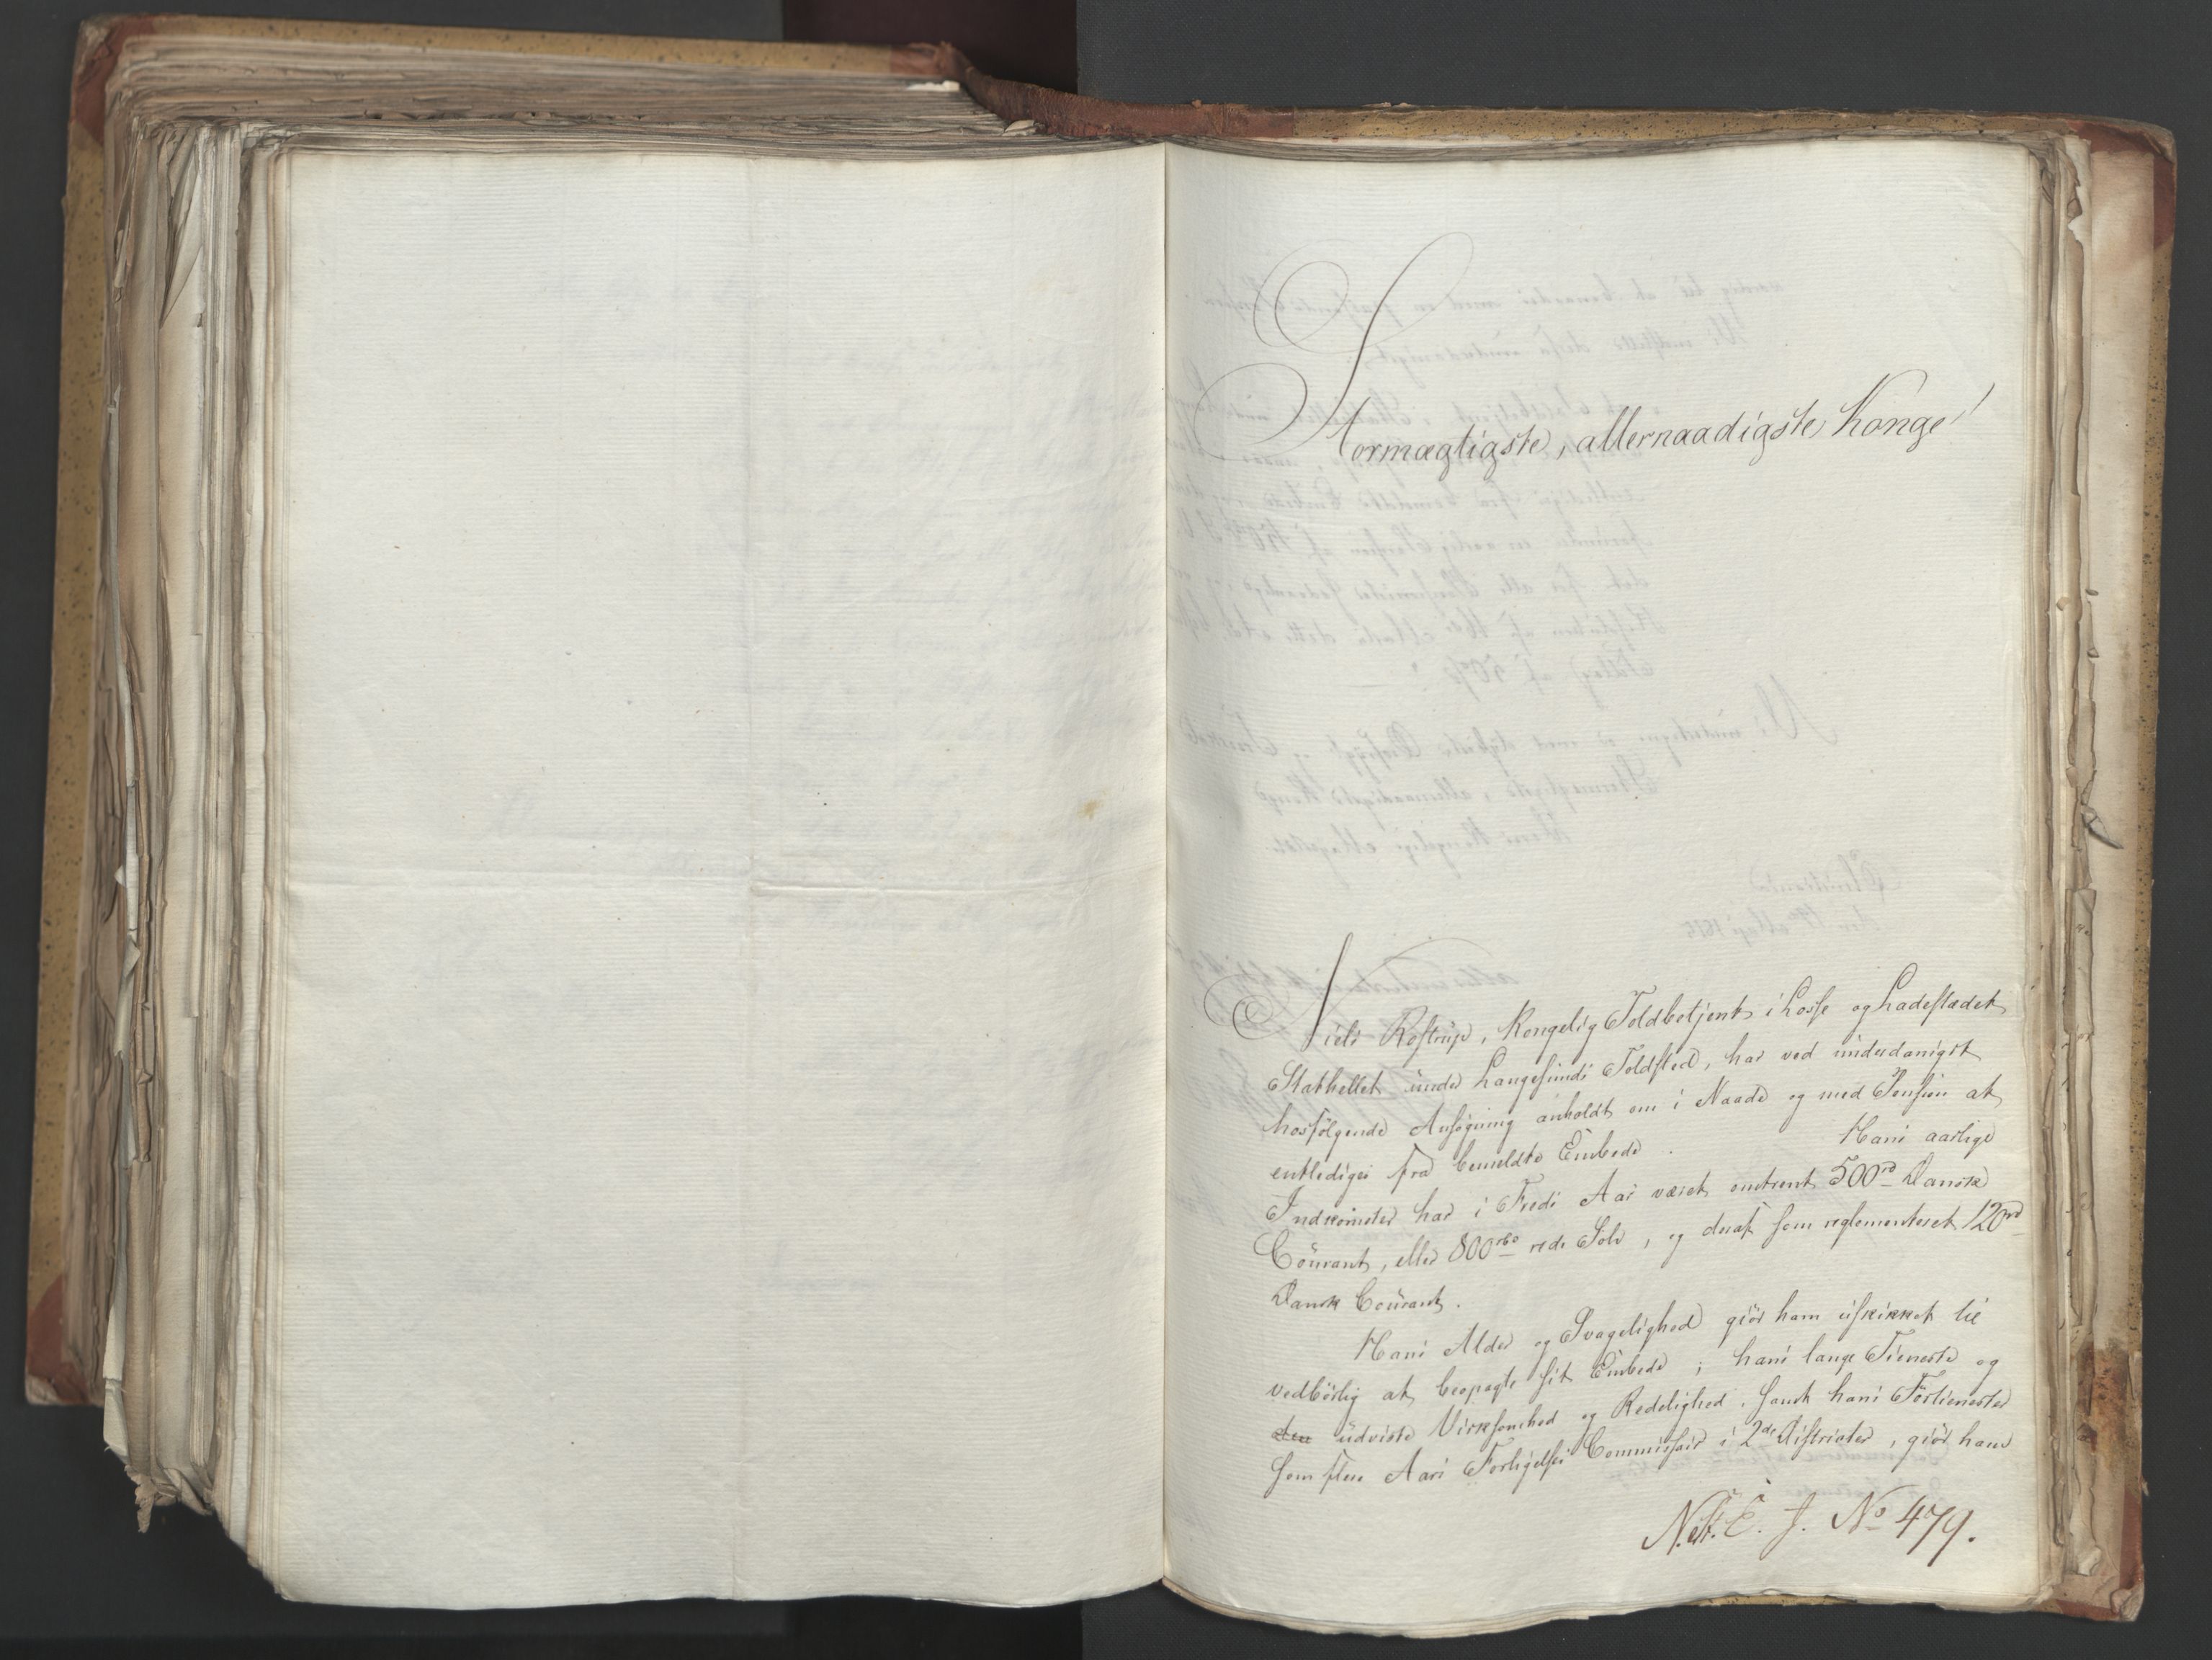 Stormægtigste, allernaadigste Konge!
Niels Rostrup, Kongelig Toldbetjent i Losse og Ladestædet
Stathellet under Langesunds Toldsted, har ved underdanigst
hosfölgende Ansögning anholdt om i Naade og med Pension at
entlediges fra bemeldte Embede. Hans aarlige
Indkomster har i Freds Aar været omtrent 500 rd Dansk
Courant, eller 800 rbd rede Sölv, og deraf som reglementeret 120 rd
Dansk Courant.
Hans Alder og Svagelighed giör ham uskikket til
vedbörlig at besörge sit Embede; hans lange Tieneste og
den udviste Virksomhed og Redelighed, samt hans Fortienester
som flere Aars Forligelses Commissair i 2de Districter, giör ham
J. No 479.